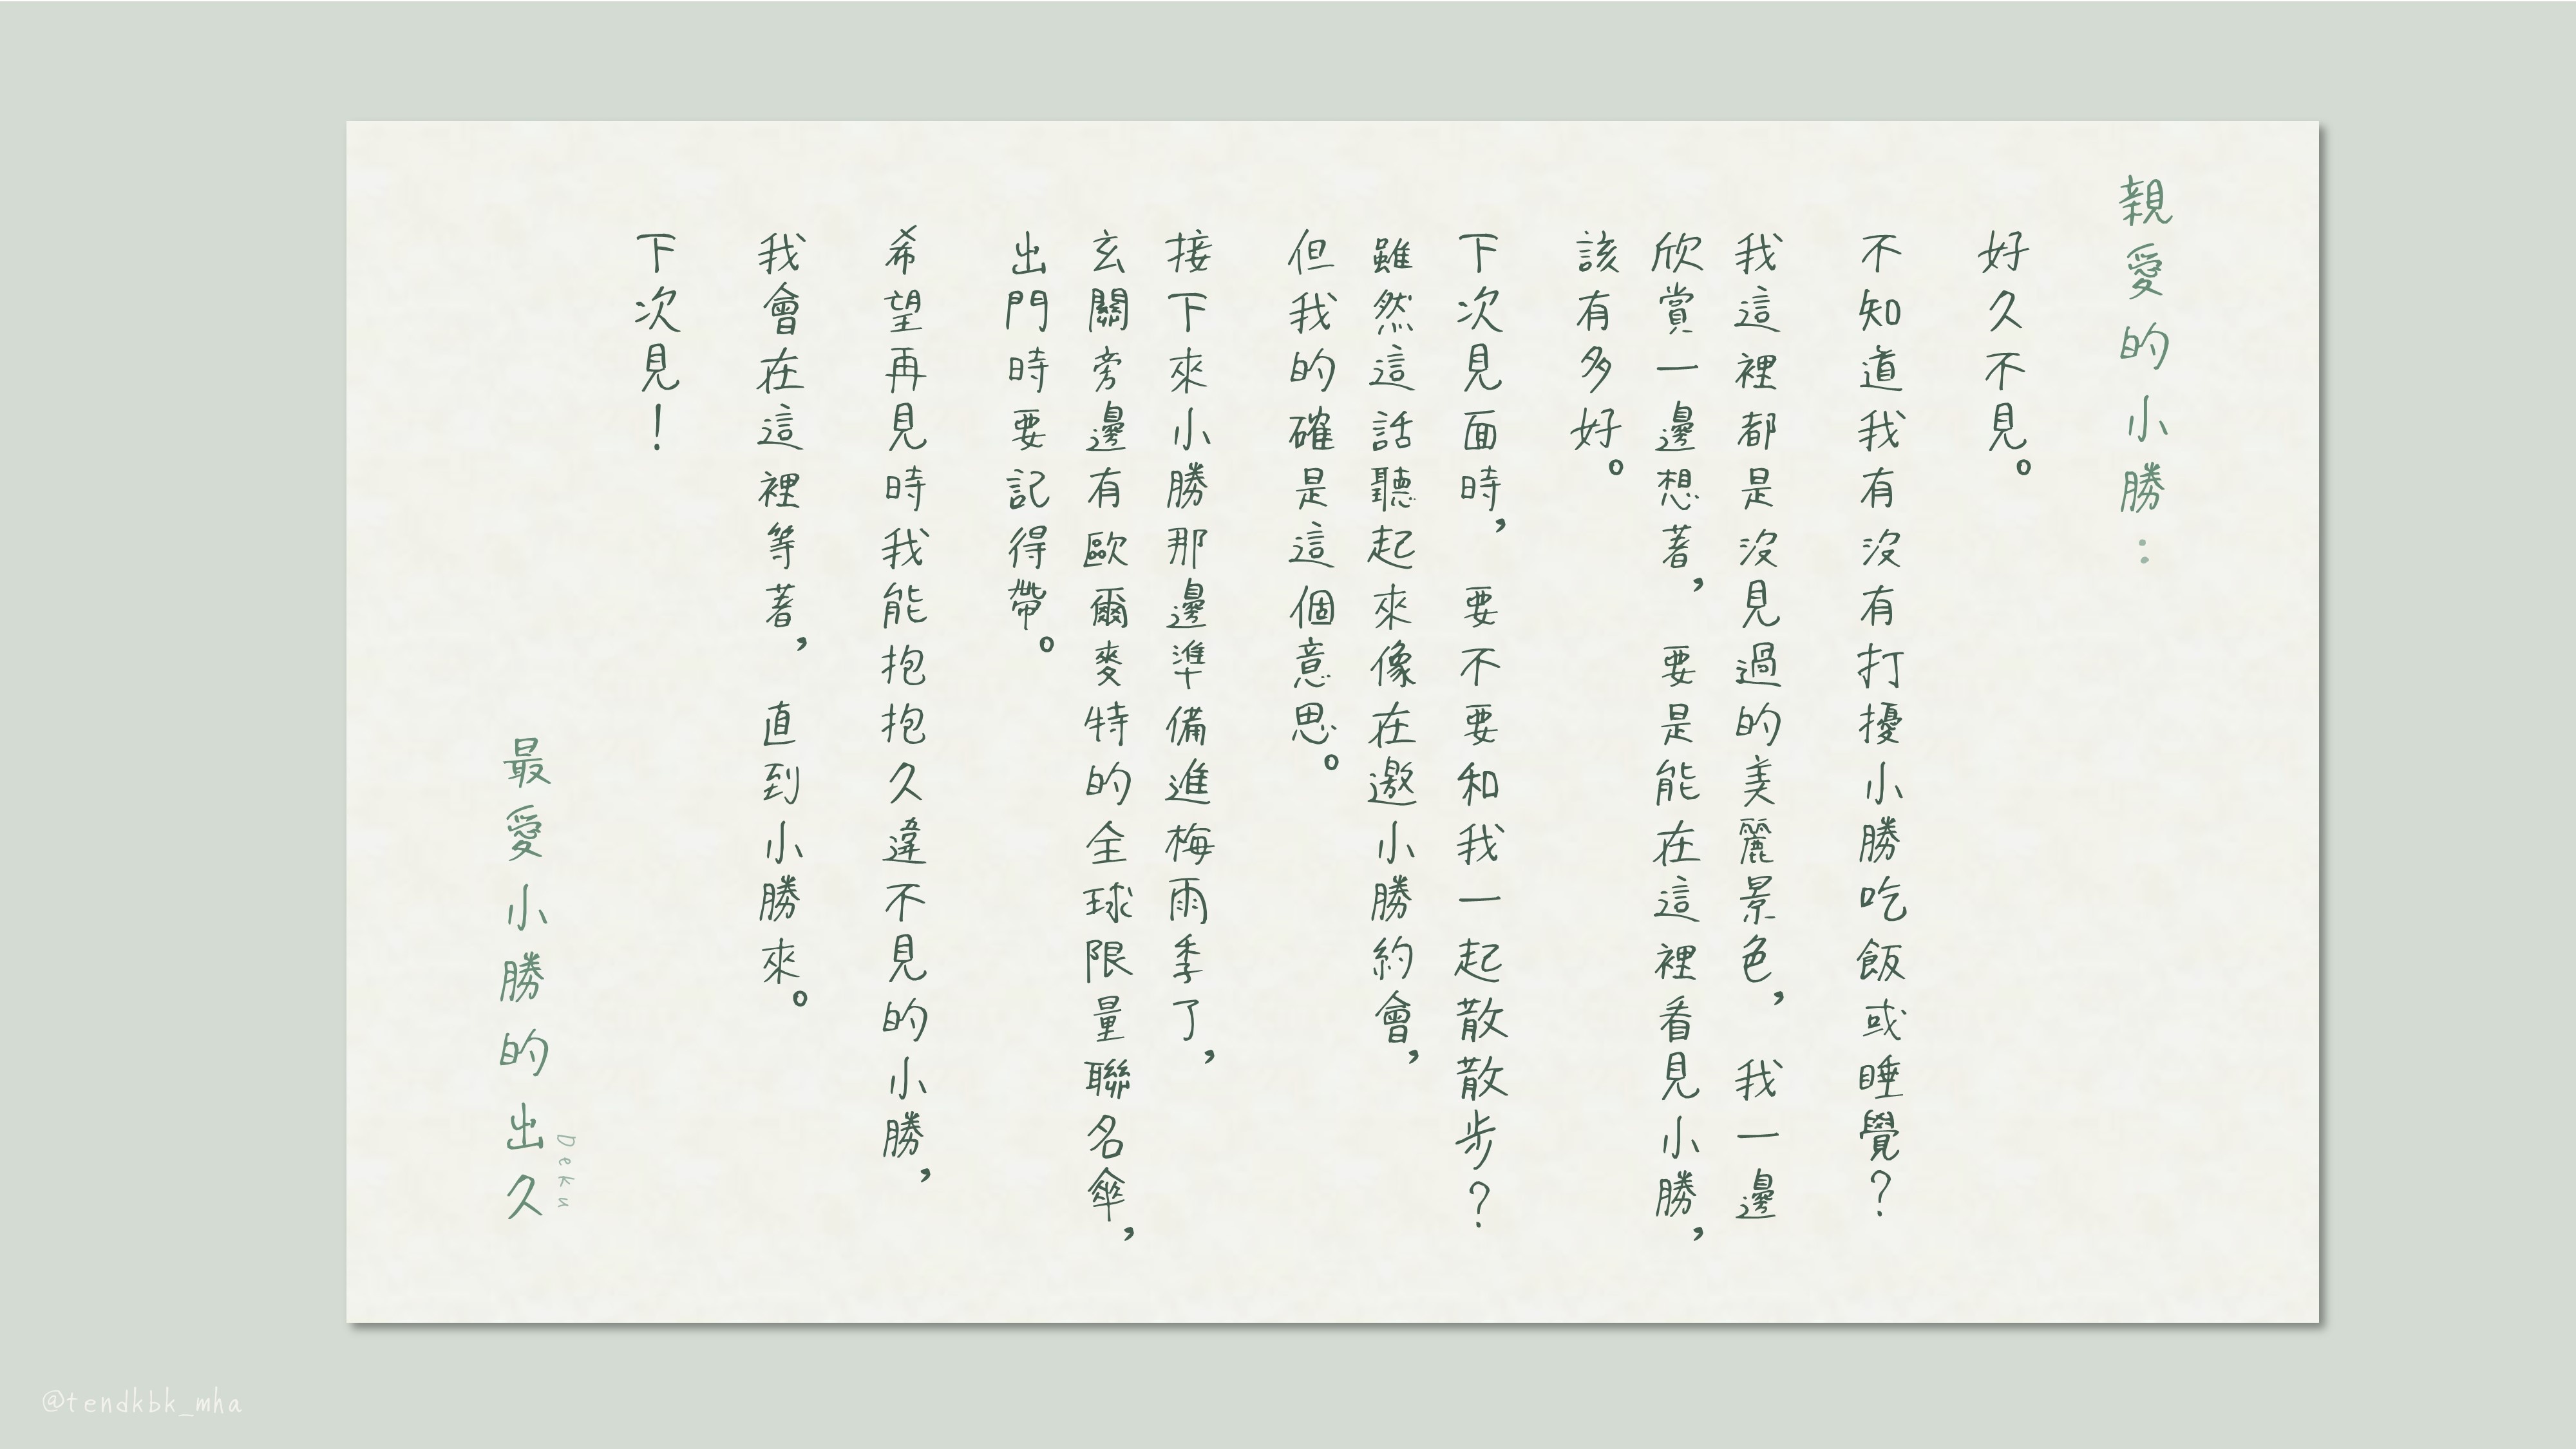 親愛的小勝：
好久不見。
不知道我有沒有打擾小勝吃飯或睡覺？
我這裡都是沒見過的美麗景色，我一邊
欣賞一邊想著，要是能在這裡看見小勝，
該有多好。
下次見面時，要不要和我一起散散步？
雖然這話聽起來像在邀小勝約會，
但我的確是這個意思。
接下來小勝那邊準備進梅雨季了，
玄關旁邊有歐爾麥特的全球限量聯名傘，
出門時要記得帶。
希望再見時我能抱抱久違不見的小勝，
我會在這裡等著，直到小勝來。
下次見！
最愛小勝的出久
Deku
@tendkbk_mha